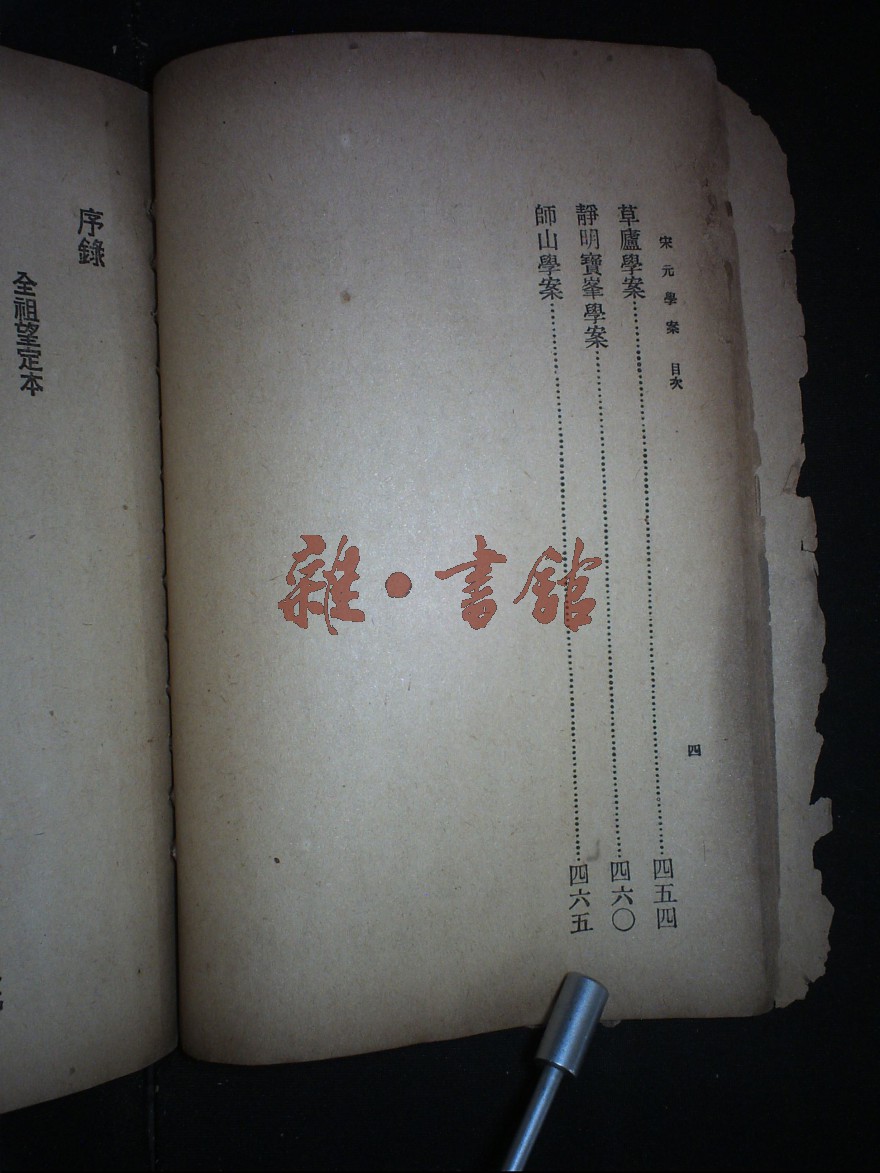 宋元學案 目次
四
草廬學案……四五四
靜明寶峯學案……四六〇
師山學案……四六五
序錄
全祖望定本
雜·書館